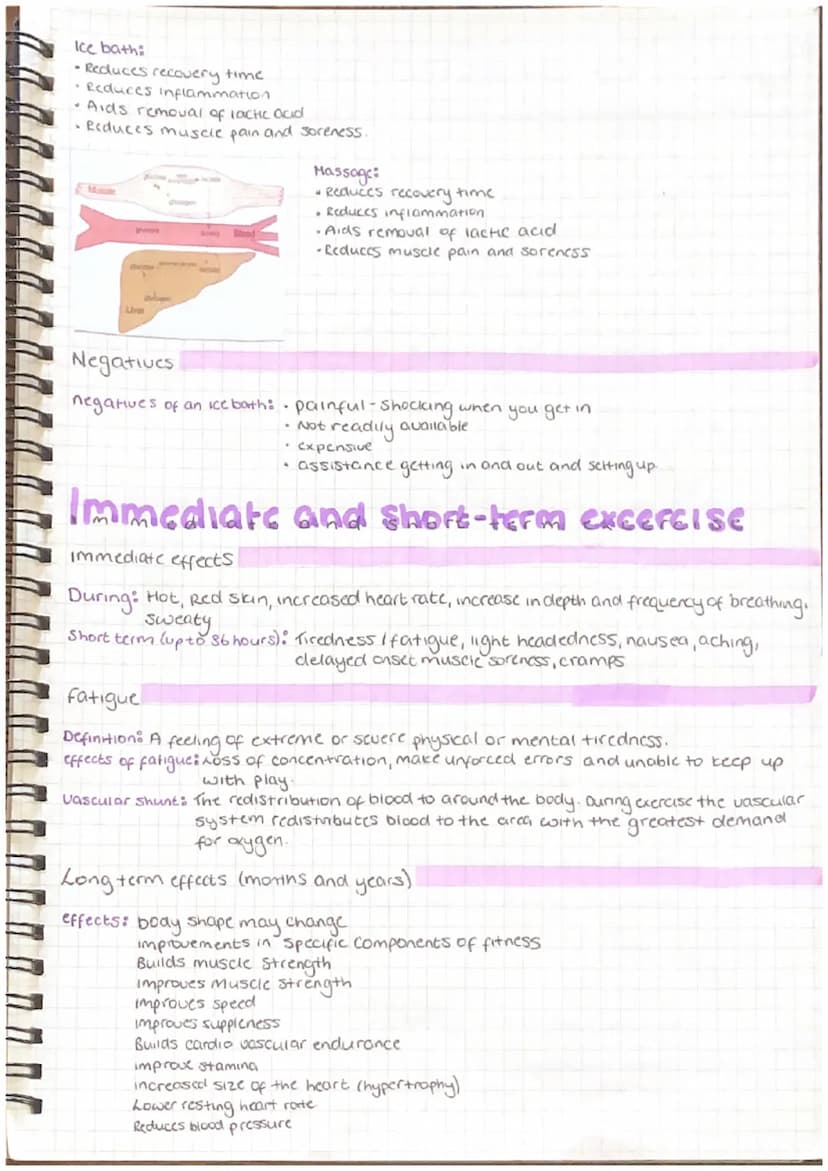 Ice bath:
• Reduces recovery time
• Reduces inflammation
• Aids removal of lactic acid
• Reduces muscle pain and soreness.
Massage:
• Reduces recovery time
• Reduces inflammation
• Aids removal of lactic acid
• Reduces muscle pain and soreness
Muscle
glucose
glycogen
glucose
Blood
glucose
Liver
Negatives
negatives of an ice bath: • painful - shocking when you get in
• Not readily available
• expensive
• assistance getting in and out and setting up
Immediate and short-term excercise
immediate effects
During: Hot, Red skin, increased heart rate, increase in depth and frequency of breathing,
sweaty
Short term (up to 36 hours): Tiredness / fatigue, light headedness, nausea, aching,
delayed onset muscle soreness, cramps
fatigue
Definition: A feeling of extreme or severe physical or mental tiredness.
effects of fatigue: Loss of concentration, make unforced errors and unable to keep up
with play.
vascular shunt: The redistribution of blood to around the body. During exercise the vascular
system redistributes blood to the area with the greatest demand
for oxygen.
Long term effects (months and years)
effects: body shape may change
improvements in specific components of fitness
Builds muscle strength
improves muscle strength
improves speed
improves suppleness
Builds cardio vascular endurance
improve stamina
increased size of the heart (hypertrophy)
Lower resting heart rate
Reduces blood pressure